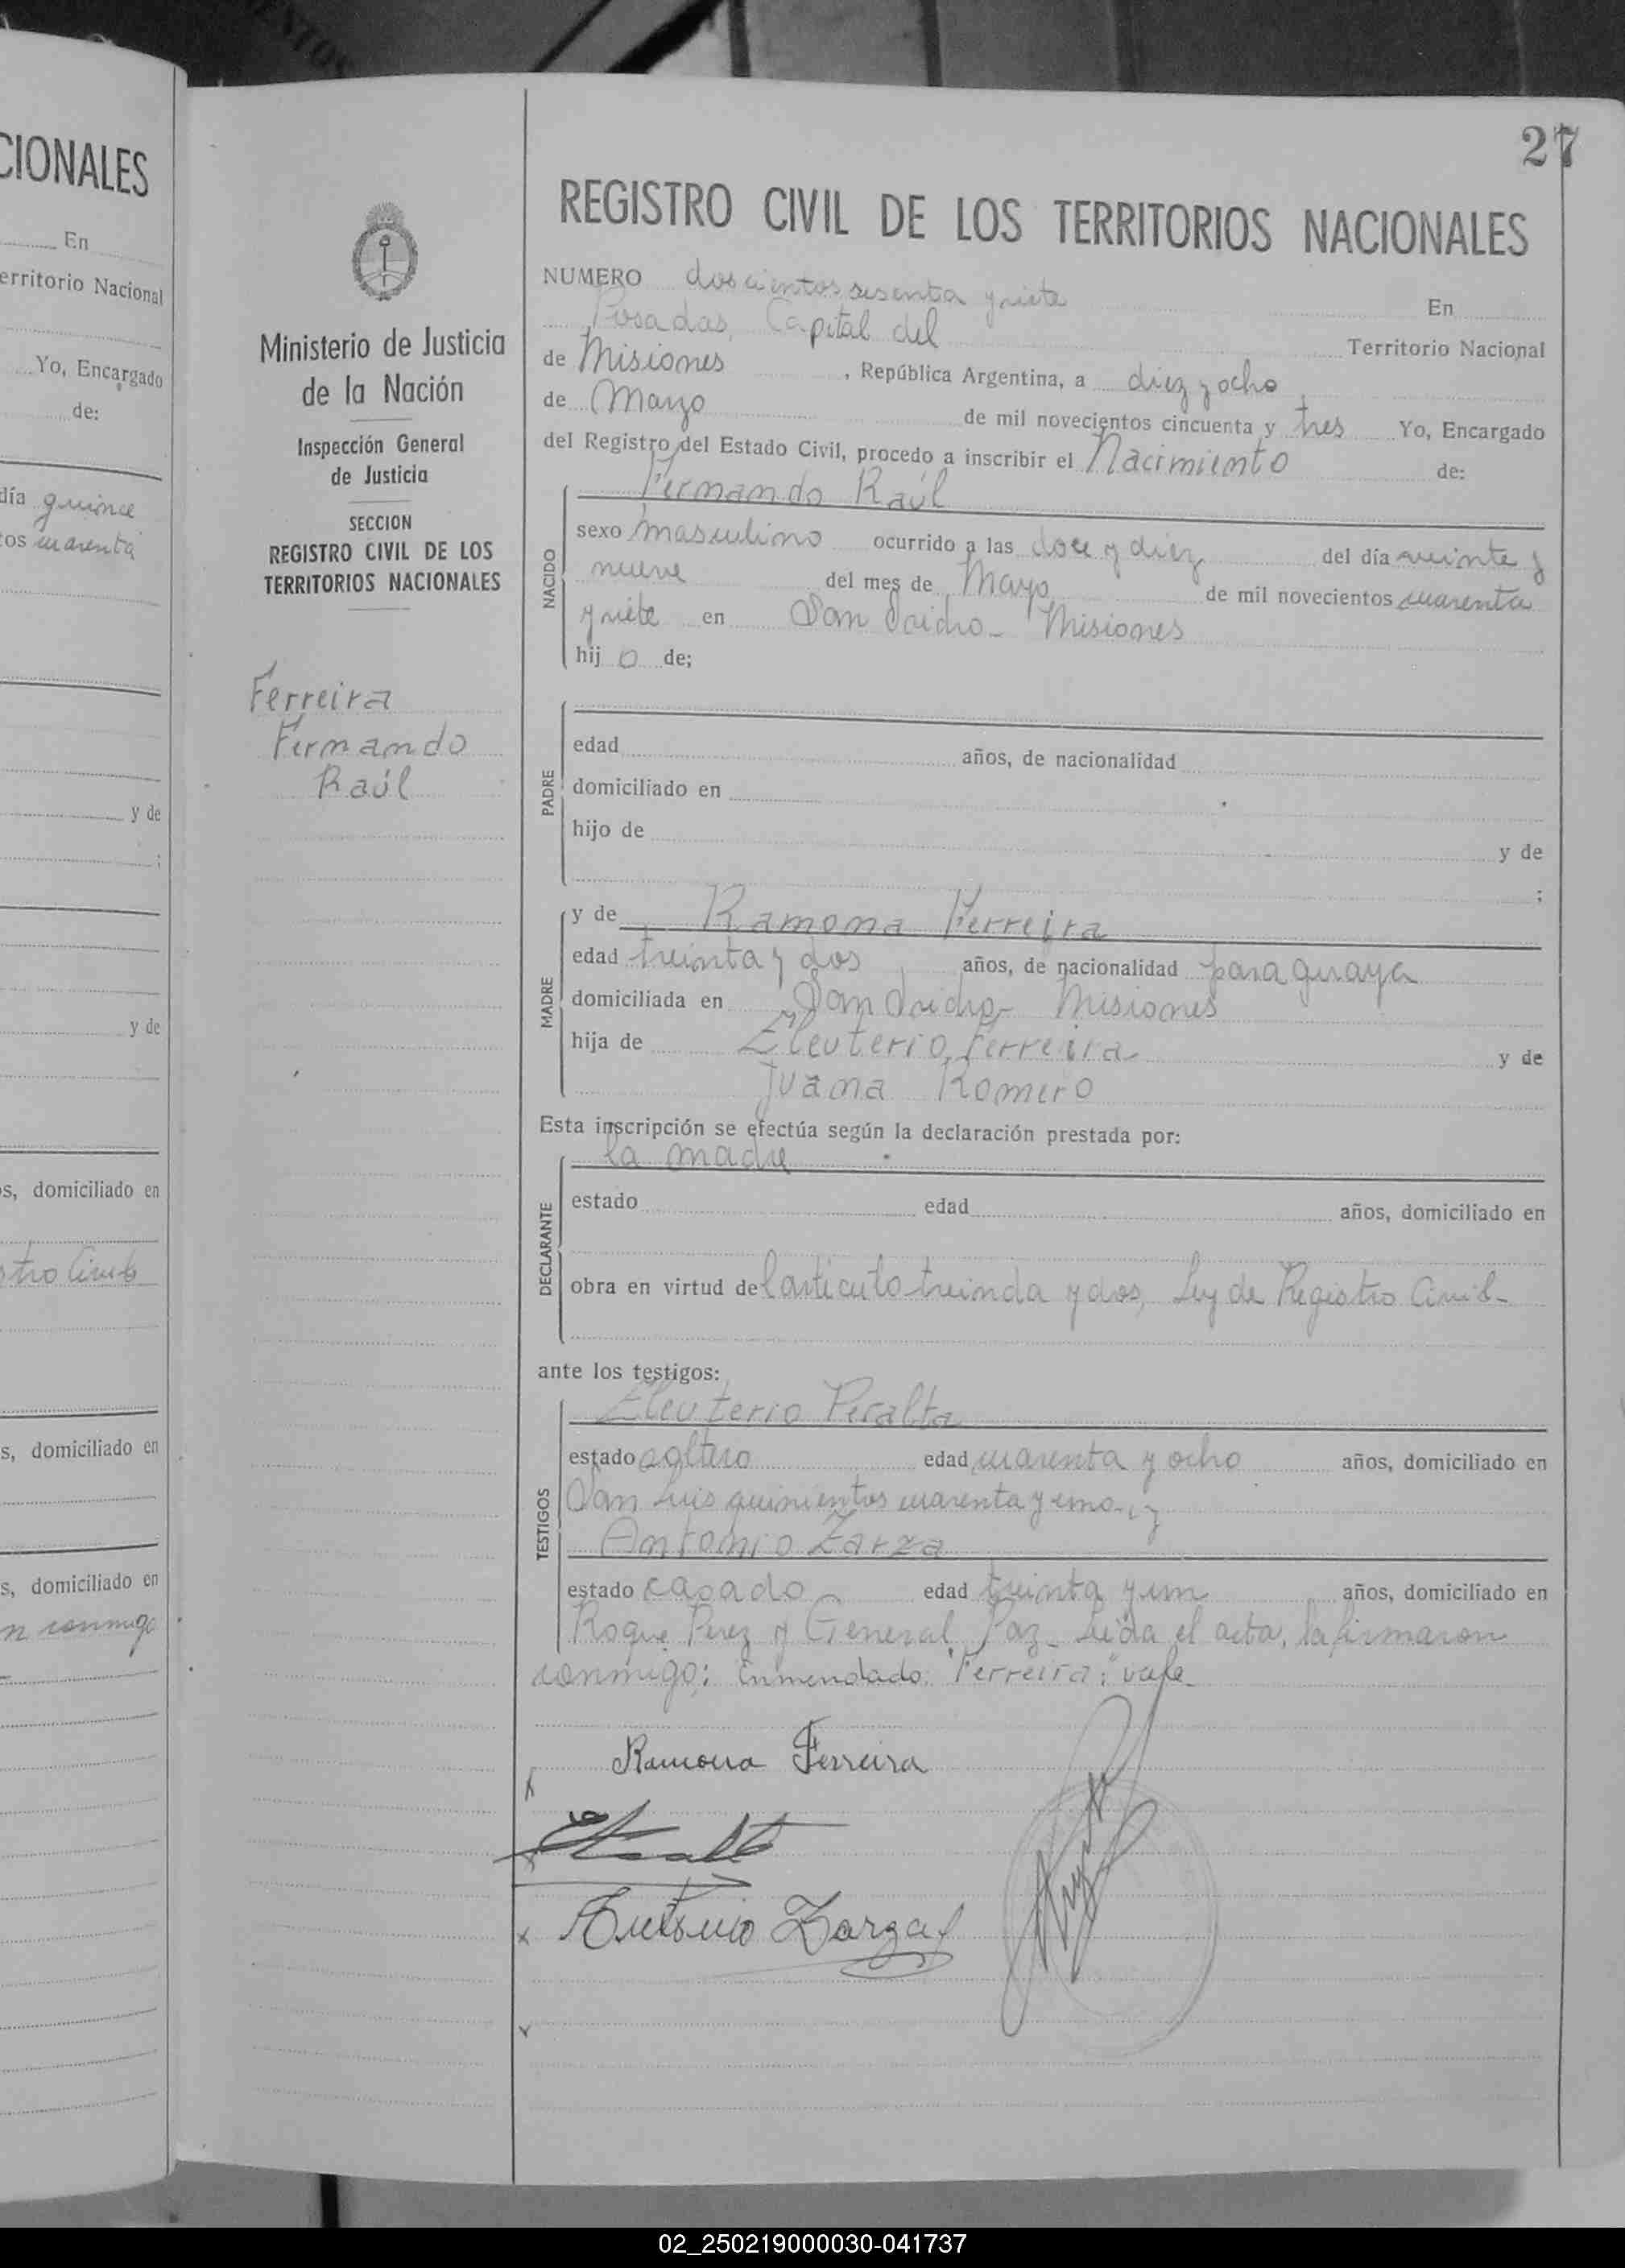 27
CIONALES
En
erritorio Nacional
Yo, Encargado
de:
día quince
tos cuarenta
y de
;
y de
s, domiciliado en
stro Civil
s, domiciliado en
s, domiciliado en
n conmigo
Ministerio de Justicia
de la Nación
Inspección General
de Justicia
SECCION
REGISTRO CIVIL DE LOS
TERRITORIOS NACIONALES
Ferreira
Fernando
Raúl
REGISTRO CIVIL DE LOS TERRITORIOS NACIONALES
NUMERO doscientos sesenta y siete En
Posadas, Capital del Territorio Nacional
de Misiones, República Argentina, a diez y ocho
de Marzo de mil novecientos cincuenta y tres Yo, Encargado
del Registro del Estado Civil, procedo a inscribir el Nacimiento de:
NACIDO
Fernando Raúl
sexo masculino ocurrido a las doce y diez del día veinte y
nueve del mes de Mayo de mil novecientos cuarenta
y siete en San Isidro - Misiones
hijo de;
PADRE
edad años, de nacionalidad
domiciliado en
hijo de y de
;
MADRE
y de Ramona Ferreira
edad treinta y dos años, de nacionalidad paraguaya
domiciliada en San Isidro - Misiones
hija de Eleuterio Ferreira y de
Juana Romero
Esta inscripción se efectúa según la declaración prestada por:
DECLARANTE
la madre
estado edad años, domiciliado en
obra en virtud del articulo treinda y dos, Ley de Registro Civil-
ante los testigos:
TESTIGOS
Eleuterio Peralta
estado soltero edad cuarenta y ocho años, domiciliado en
San Luis quinientos cuarenta y uno-, y
Antonio Zarza
estado casado edad treinta y un años, domiciliado en
Roque Perez y General Paz_ Leída el acta, la firmaron
conmigo: Enmendado: "Ferreira": vale_
Ramona Ferreira
Antonio Zarza
02_250219000030-041737